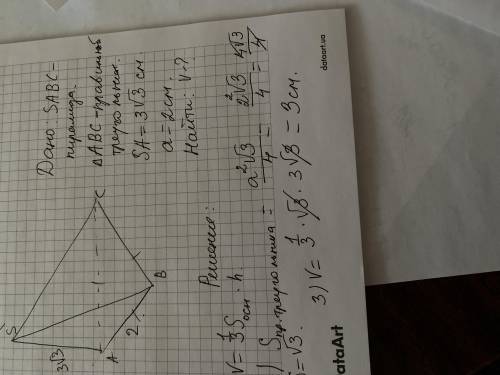 S
3√3
A
C
2
B
Дано SABC –
пирамида.
ΔABC – правильный
треугольник.
SA = 3√3 см.
a = 2 см.
Найти: V-?
Решение:
V = 1/3 Sосн · h
Sпр. треугольника = a²√3/4 = 2²√3/4 = 4√3/4
= √3.
3) V = 1/3 · √3 · 3√3 = 3 см.
dataart.ua
dataArt